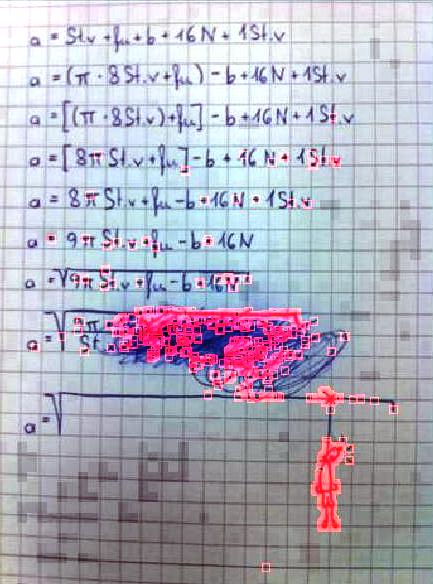 a = St.v + fu + b + 16N + 1St.v
a = (π · 8St.v + fu) - b + 16N + 1St.v
a = [(π · 8St.v) + fu] - b + 16N + 1St.v
a = [8π St.v + fu] - b + 16N + 1St.v
a = 8π St.v + fu - b + 16N + 1St.v
a = 9π St.v + fu - b + 16N
a = √9π St.v + fu - b + 16N
a = √9π
St.
a = √